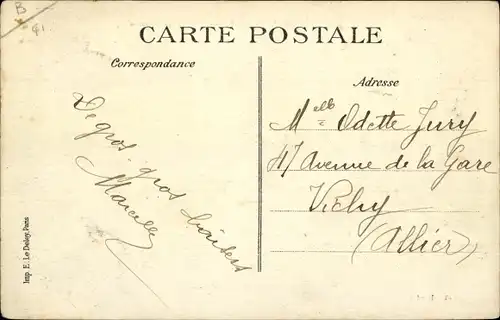 CARTE POSTALE
Correspondance
Adresse
De gros gros baisers
Marcelle
Melle Odette Jury
47 Avenue de la Gare
Vichy
(Allier)
Imp. E. Le Deley, Paris